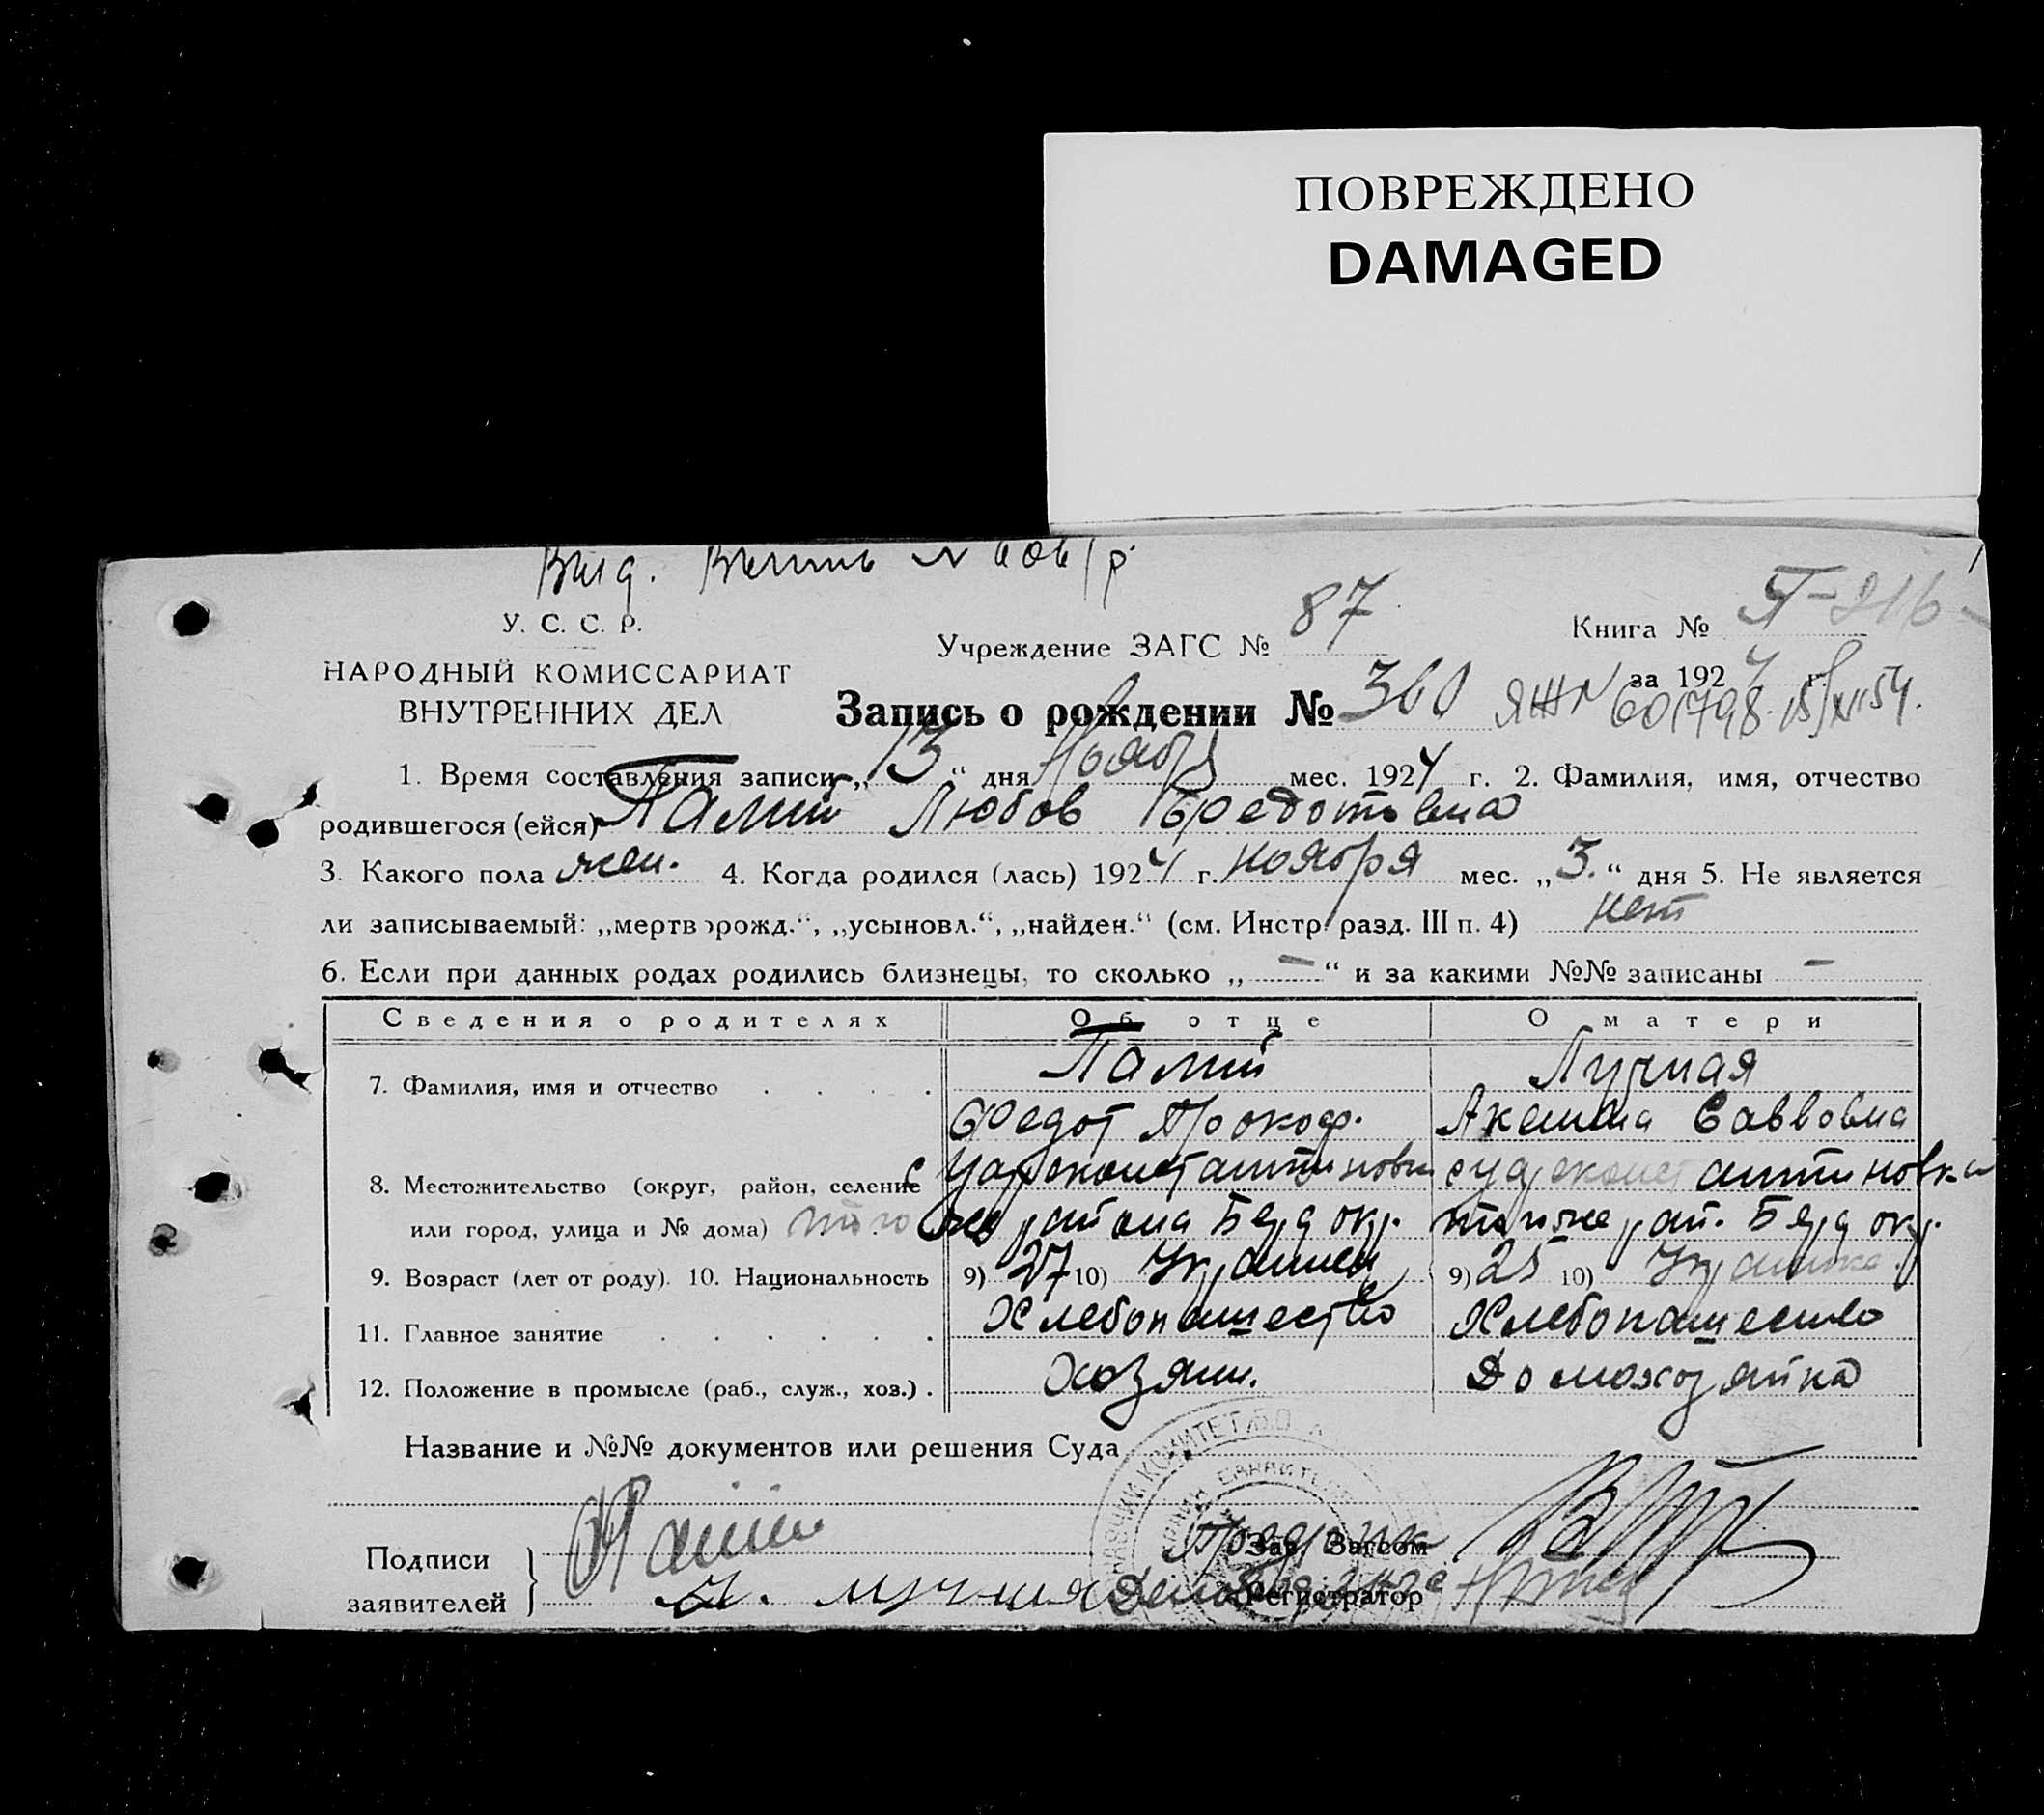 ПОВРЕЖДЕНО
DAMAGED
У. С. С. Р.
НАРОДНЫЙ КОМИССАРИАТ
ВНУТРЕННИХ ДЕЛ
Учреждение ЗАГС № 87
Книга №
за 1924 г.
Запись о рождении № 360
1. Время составления записи „13“ дня Ноября мес. 1924 г. 2. Фамилия, имя, отчество
родившегося (ейся) Палий Любов Федотовна
3. Какого пола жен. 4. Когда родился (лась) 1924 г. ноября мес. „3.“ дня 5. Не является
ли записываемый: „мертворожд.“, „усыновл.“, „найден.“ (см. Инстр. разд. III п. 4) нет
6. Если при данных родах родились близнецы, то сколько „ — “ и за какими №№ записаны —
Сведения о родителях Об отце О матери
7. Фамилия, имя и отчество Палий Лучная
Федот Прокоф. Аксинна Саввовна
8. Местожительство (округ, район, селение с Цареконстантиновки с Цареконстантиновка
или город, улица и № дома) того же района Берд окр. того же рай. Берд окр.
9. Возраст (лет от роду). 10. Национальность 9) 27 10) Украинец 9) 25 10) Украинка
11. Главное занятие Хлебопашество Хлебопашество
12. Положение в промысле (раб., служ., хоз.) Хозяин. Домохозяйка
Название и №№ документов или решения Суда
Подписи
заявителей
Зав. Загсом
Регистратор